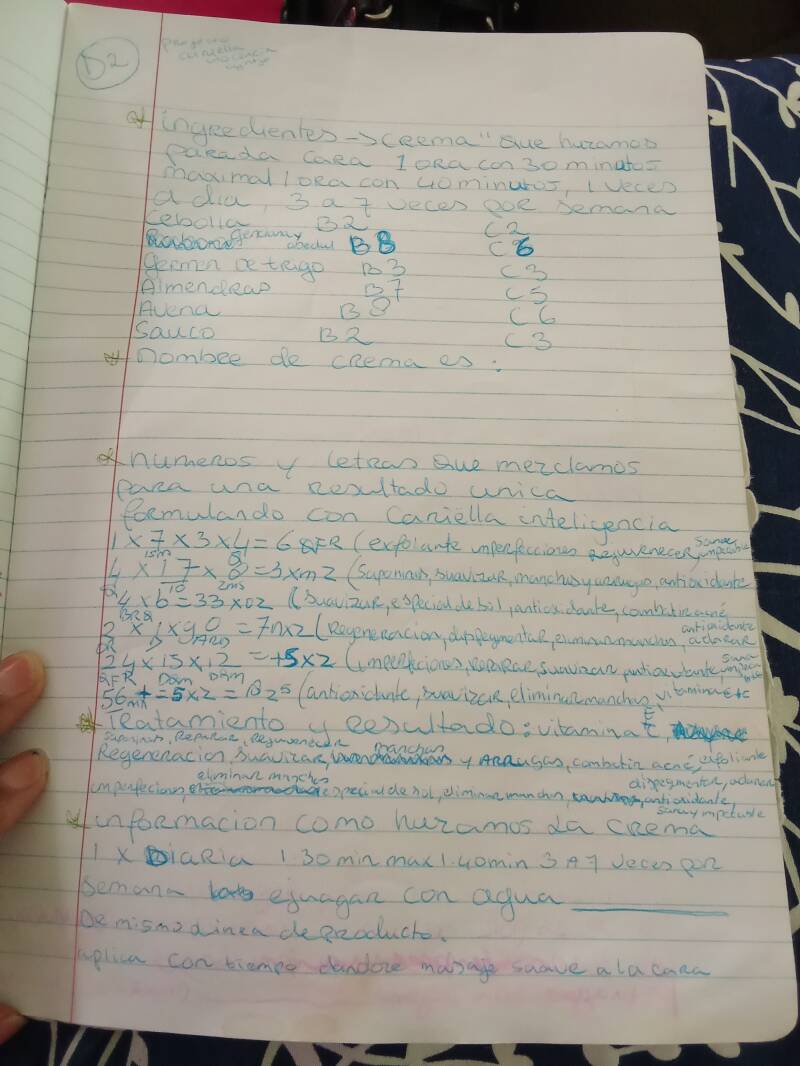 D2
* ingredientes -> crema" que huramos
para da cara 1 ora con 30 minutos
maximal 1 ora con 40 minutos, 1 veces
a dia, 3 a 7 veces por semana
Cebolla B2 C2
genciana y abedul B8 C6
germen de trigo B3 C3
Almendras B7 C5
Avena B8 C6
Sauco B2 C3
* nombre de crema es:
* numeros y letras que mezclamos
para una resultado unica
formulando con Cariella inteligencia
1 x 7 x 3 x 4 = 68FR (exfoliante imperfecciones Rejuvenecer,
4 x 17 x 8 = 3xm2 (Suponinas, suavizar, manchas y arrugas, antioxidante
4 x 6 = 33 x 02 (Suavizar, especial de sol, antioxidante, combatir acné
antioxidante
x 1 x 90 = 7nx2 (Regeneracion, dispegmentar, eliminar manchas, aclarar
24 x 15 x 12 = +5x2 (imperfeciones, Reparar, suavizar antioxidante,
56 + = 5 x 2 = (antioxidante, suavizar, eliminar manchas, vitamina E+C
* Tratamiento y resultado: vitamina
Suponinas, Reparar, Rejuvenecer manchas
Regeneracion, Suavizar, y ARRUGAS, combatir acné, exfoliante
eliminar manchas dispegmentar, aclarar
imperfecion, especial de sol, eliminar manchas, antioxidante,
* informacion como huramos da crema
1 x Diaria 1.30 min max 1.40 min 3 A 7 veces por
Semana ejuagar con agua
De misma dinea de producto.
aplica con tiempo dandose masaje suave a la cara